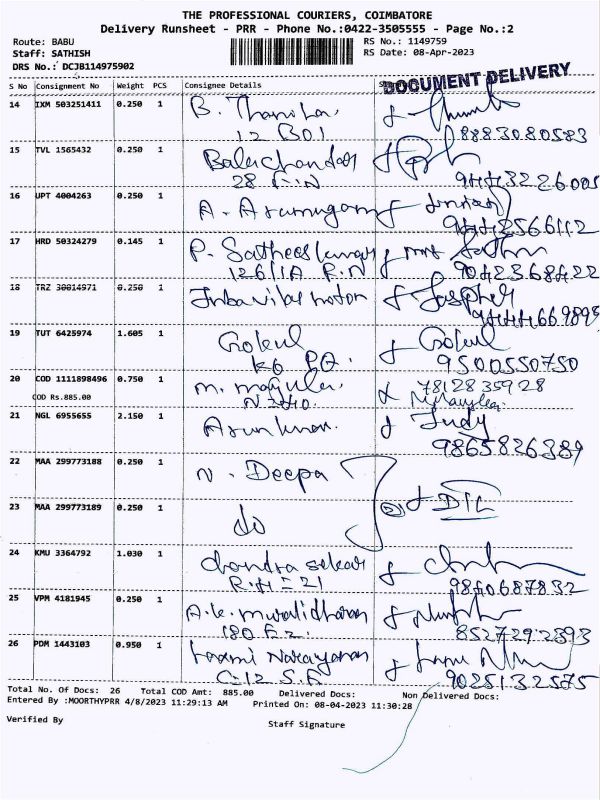 THE PROFESSIONAL COURIERS, COIMBATORE
Delivery Runsheet - PRR - Phone No.:0422-3505555 - Page No.:2
Route: BABU
Staff: SATHISH
DRS No.: DCJB114975902
RS No.: 1149759
RS Date: 08-Apr-2023
DOCUMENT DELIVERY
S No Consignment No Weight PCS Consignee Details
14 IXM 503251411 0.250 1 B.
12 B01 8883080583
15 TVL 1565432 0.250 1 Balachandar
28 9443226005
16 UPT 4004263 0.250 1 A. Arumugam
9442566112
17 HRD 50324279 0.145 1 P.
126/1A R.N 9042368422
18 TRZ 30014971 0.250 1 motor
19 TUT 6425974 1.605 1 Gokul Gokul
9500550750
20 COD 1111898496 0.750 1 M. 7812835928
COD Rs.885.00
21 NGL 6955655 2.150 1 Arun Judy
9865826389
22 MAA 299773188 0.250 1 N. Deepa
23 MAA 299773189 0.250 1 do
24 KMU 3364792 1.030 1 Chandra sekar
9840687832
25 VPM 4181945 0.250 1 A.K. Muralidharan
8527292893
26 PDM 1443103 0.950 1 Laxmi Narayanan
C-12 S.F 9025132575
Total No. Of Docs: 26 Total COD Amt: 885.00 Delivered Docs: Non Delivered Docs:
Entered By :MOORTHYPRR 4/8/2023 11:29:13 AM Printed On: 08-04-2023 11:30:28
Verified By Staff Signature